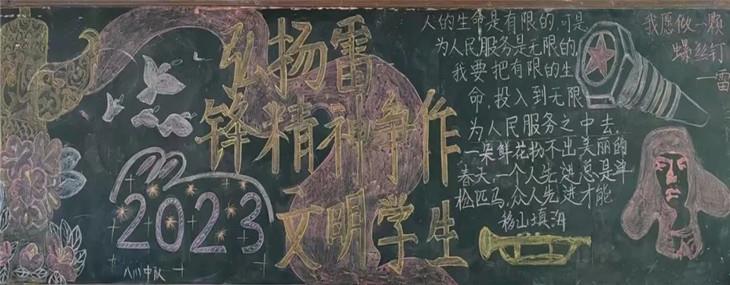 弘扬雷
锋精神争作
文明学生
2023
八川中队
人的生命是有限的可是
为人民服务是无限的
我要把有限的生
命,投入到无限
为人民服务之中去
一朵鲜花扮不出美丽的
春天,一个人先进总是单
枪匹马,众人先进才能
移山填海
我愿做一颗
螺丝钉
一雷